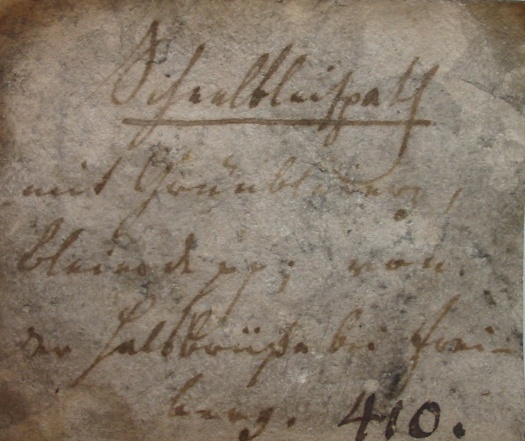 Scheelbleispath
mit Grünbleierz,
bleierde pp; von
der Halsbrücke bei Frei-
berg. 410.